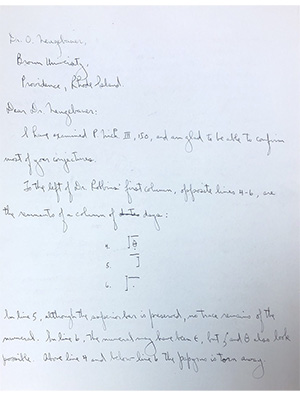 Dr. O. Neugebauer,
Brown University,
Providence, Rhode Island.
Dear Dr. Neugebauer:
I have examined P. Mich. III, 150, and am glad to be able to confirm
most of your conjectures.
To the left of Dr. Robbins' first column, opposite lines 4-6, are
the remnants of a column of dates days:
4.
5.
6.
In line 5, although the superior bar is preserved, no trace remains of the
numeral. In line 6, the numeral may have been ε, but ζ and θ also look
possible. Above line 4 and below line 6 the papyrus is torn away.